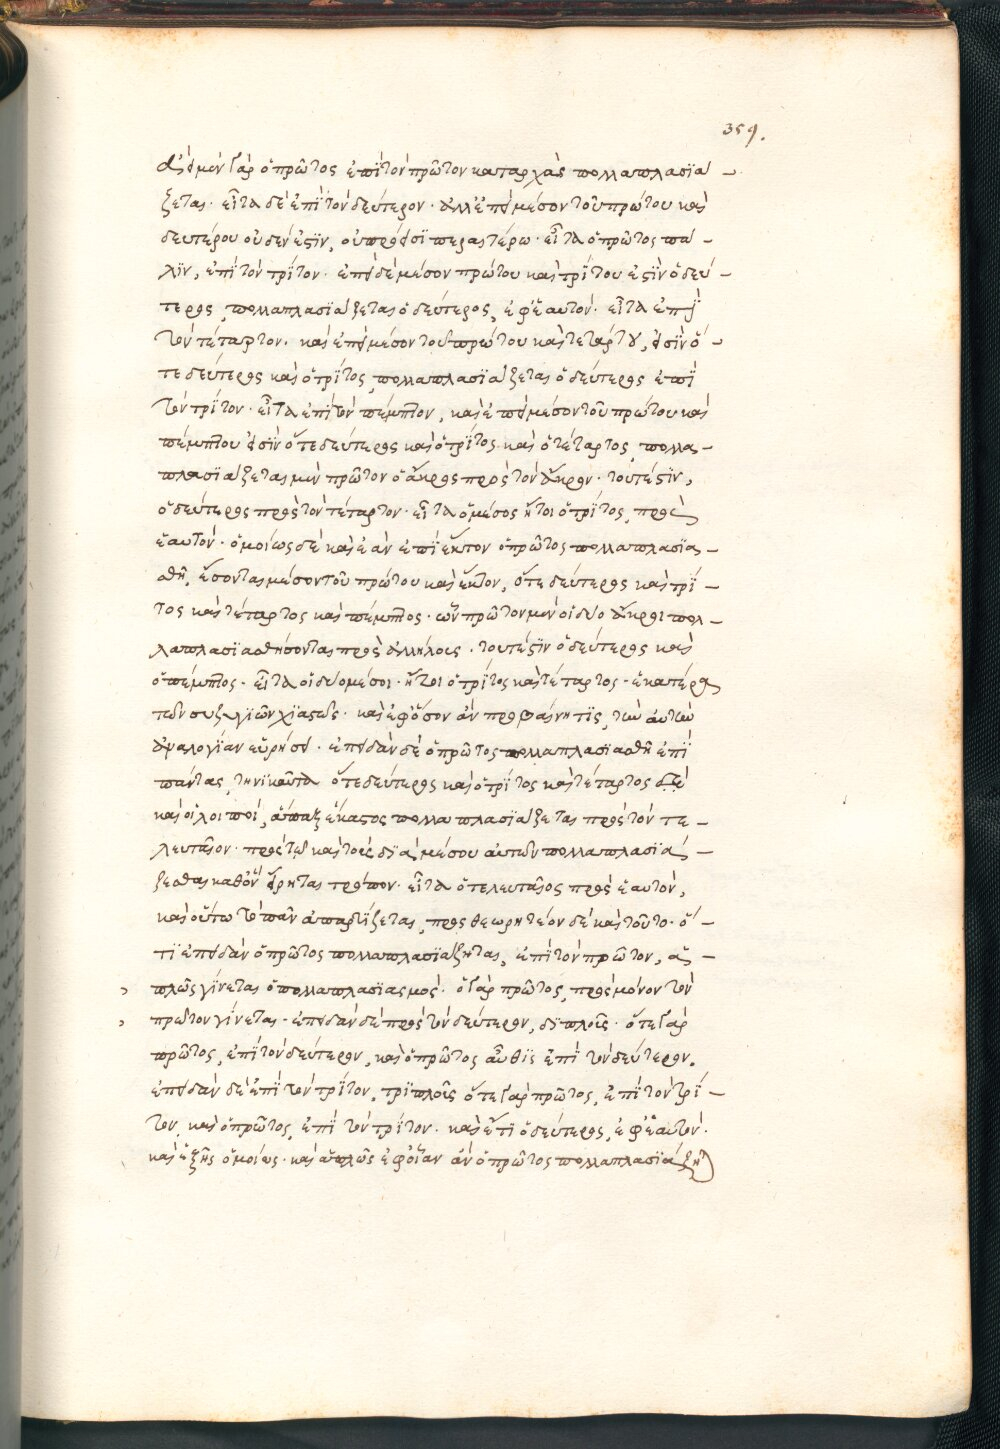 359.
ἀεὶ μὲν γὰρ ὁ πρῶτος ἐπὶ τὸν πρῶτον καταρχὰς πολλαπλασιά –
ζεται· εἶτα δὲ ἐπὶ τὸν δεύτερον· ἀλλ' ἐπεὶ μέσον τοῦ πρώτου καὶ
δευτέρου οὐδέν ἐστιν, οὐ πρόεισι περαιτέρω· εἶτα ὁ πρῶτος πά –
λιν, ἐπὶ τὸν τρίτον· ἐπεὶ δὲ μέσον πρώτου καὶ τρίτου ἐστὶν ὁ δεύ –
τερος, πολλαπλασιάζεται ὁ δεύτερος, ἐφ' ἑαυτόν· εἶτα ἐπὶ
τὸν τέταρτον· καὶ ἐπεὶ μέσον τοῦ πρώτου καὶ τετάρτου, εἰσὶν ὅ –
τε δεύτερος καὶ ὁ τρίτος, πολλαπλασιάζεται ὁ δεύτερος ἐπὶ
τὸν τρίτον· εἶτα ἐπὶ τὸν πέμπτον, καὶ ἐπεὶ μέσον τοῦ πρώτου καὶ
πέμπτου εἰσὶν ὅ τε δεύτερος καὶ ὁ τρίτος καὶ ὁ τέταρτος, πολλα –
πλασιάζεται μὲν πρῶτον ὁ ἄκρος πρὸς τὸν ἄκρον· τουτέστιν,
ὁ δεύτερος πρὸς τὸν τέταρτον· εἶτα ὁ μέσος ἤτοι ὁ τρίτος, πρὸς
ἑαυτόν· ὁμοίως δὲ καὶ ἐὰν ἐπὶ ἕκτον ὁ πρῶτος πολλαπλασια –
σθῇ, ἔσονται μέσον τοῦ πρώτου καὶ ἕκτου, ὅ τε δεύτερος καὶ τρί –
τος καὶ τέταρτος καὶ πέμπτος· ὧν πρῶτον μὲν οἱ δύο ἄκροι πολ –
λαπλασιασθήσονται πρὸς ἀλλήλους· τουτέστιν ὁ δεύτερος καὶ
ὁ πέμπτος· εἶτα οἱ δύο μέσοι· ἤτοι ὁ τρίτος καὶ τέταρτος· ἑκατέρα
τῶν συζυγιῶν χιαστῶς· καὶ ἐφ' ὅσον ἂν προβαίνῃ τις, τὴν αὐτὴν
ἀναλογίαν εὑρήσει· ἐπειδὰν δὲ ὁ πρῶτος πολλαπλασιασθῇ ἐπὶ
πάντας, τηνικαῦτα ὅ τε δεύτερος καὶ ὁ τρίτος καὶ τέταρτος
καὶ οἱ λοιποί, ἅπαξ ἕκαστος πολλαπλασιάζεται πρὸς τὸν τε –
λευταῖον· πρὸς τῷ καὶ τοὺς διὰ μέσου αὐτῶν πολλαπλασιά –
ζεσθαι καθ' ὃν εἴρηται τρόπον· εἶτα ὁ τελευταῖος πρὸς ἑαυτόν,
καὶ οὕτω τὸ πᾶν ἀπαρτίζεται, προσθεωρητέον δὲ καὶ τοῦτο· ὅ –
τι ἐπειδὰν ὁ πρῶτος πολλαπλασιάζηται, ἐπὶ τὸν πρῶτον, ἁ –
πλῶς γίνεται ὁ πολλαπλασιασμός· ὁ γὰρ πρῶτος, πρὸς μόνον τὸν
πρῶτον γίνεται· ἐπειδὰν δὲ πρὸς τὸν δεύτερον, διπλοῦς· ὅ τε γὰρ
πρῶτος, ἐπὶ τὸν δεύτερον, καὶ ὁ πρῶτος αὖθις ἐπὶ τὸν δεύτερον.
ἐπειδὰν δὲ ἐπὶ τὸν τρίτον, τριπλοῦς ὅ τε γὰρ πρῶτος, ἐπὶ τὸν τρί –
τον, καὶ ὁ πρῶτος, ἐπὶ τὸν τρίτον· καὶ ἔτι ὁ δεύτερος, ἐφ' ἑαυτόν·
καὶ ἑξῆς ὁμοίως· καὶ ἁπλῶς ἐφ' οἵαν ἂν ὁ πρῶτος πολλαπλασιάζη